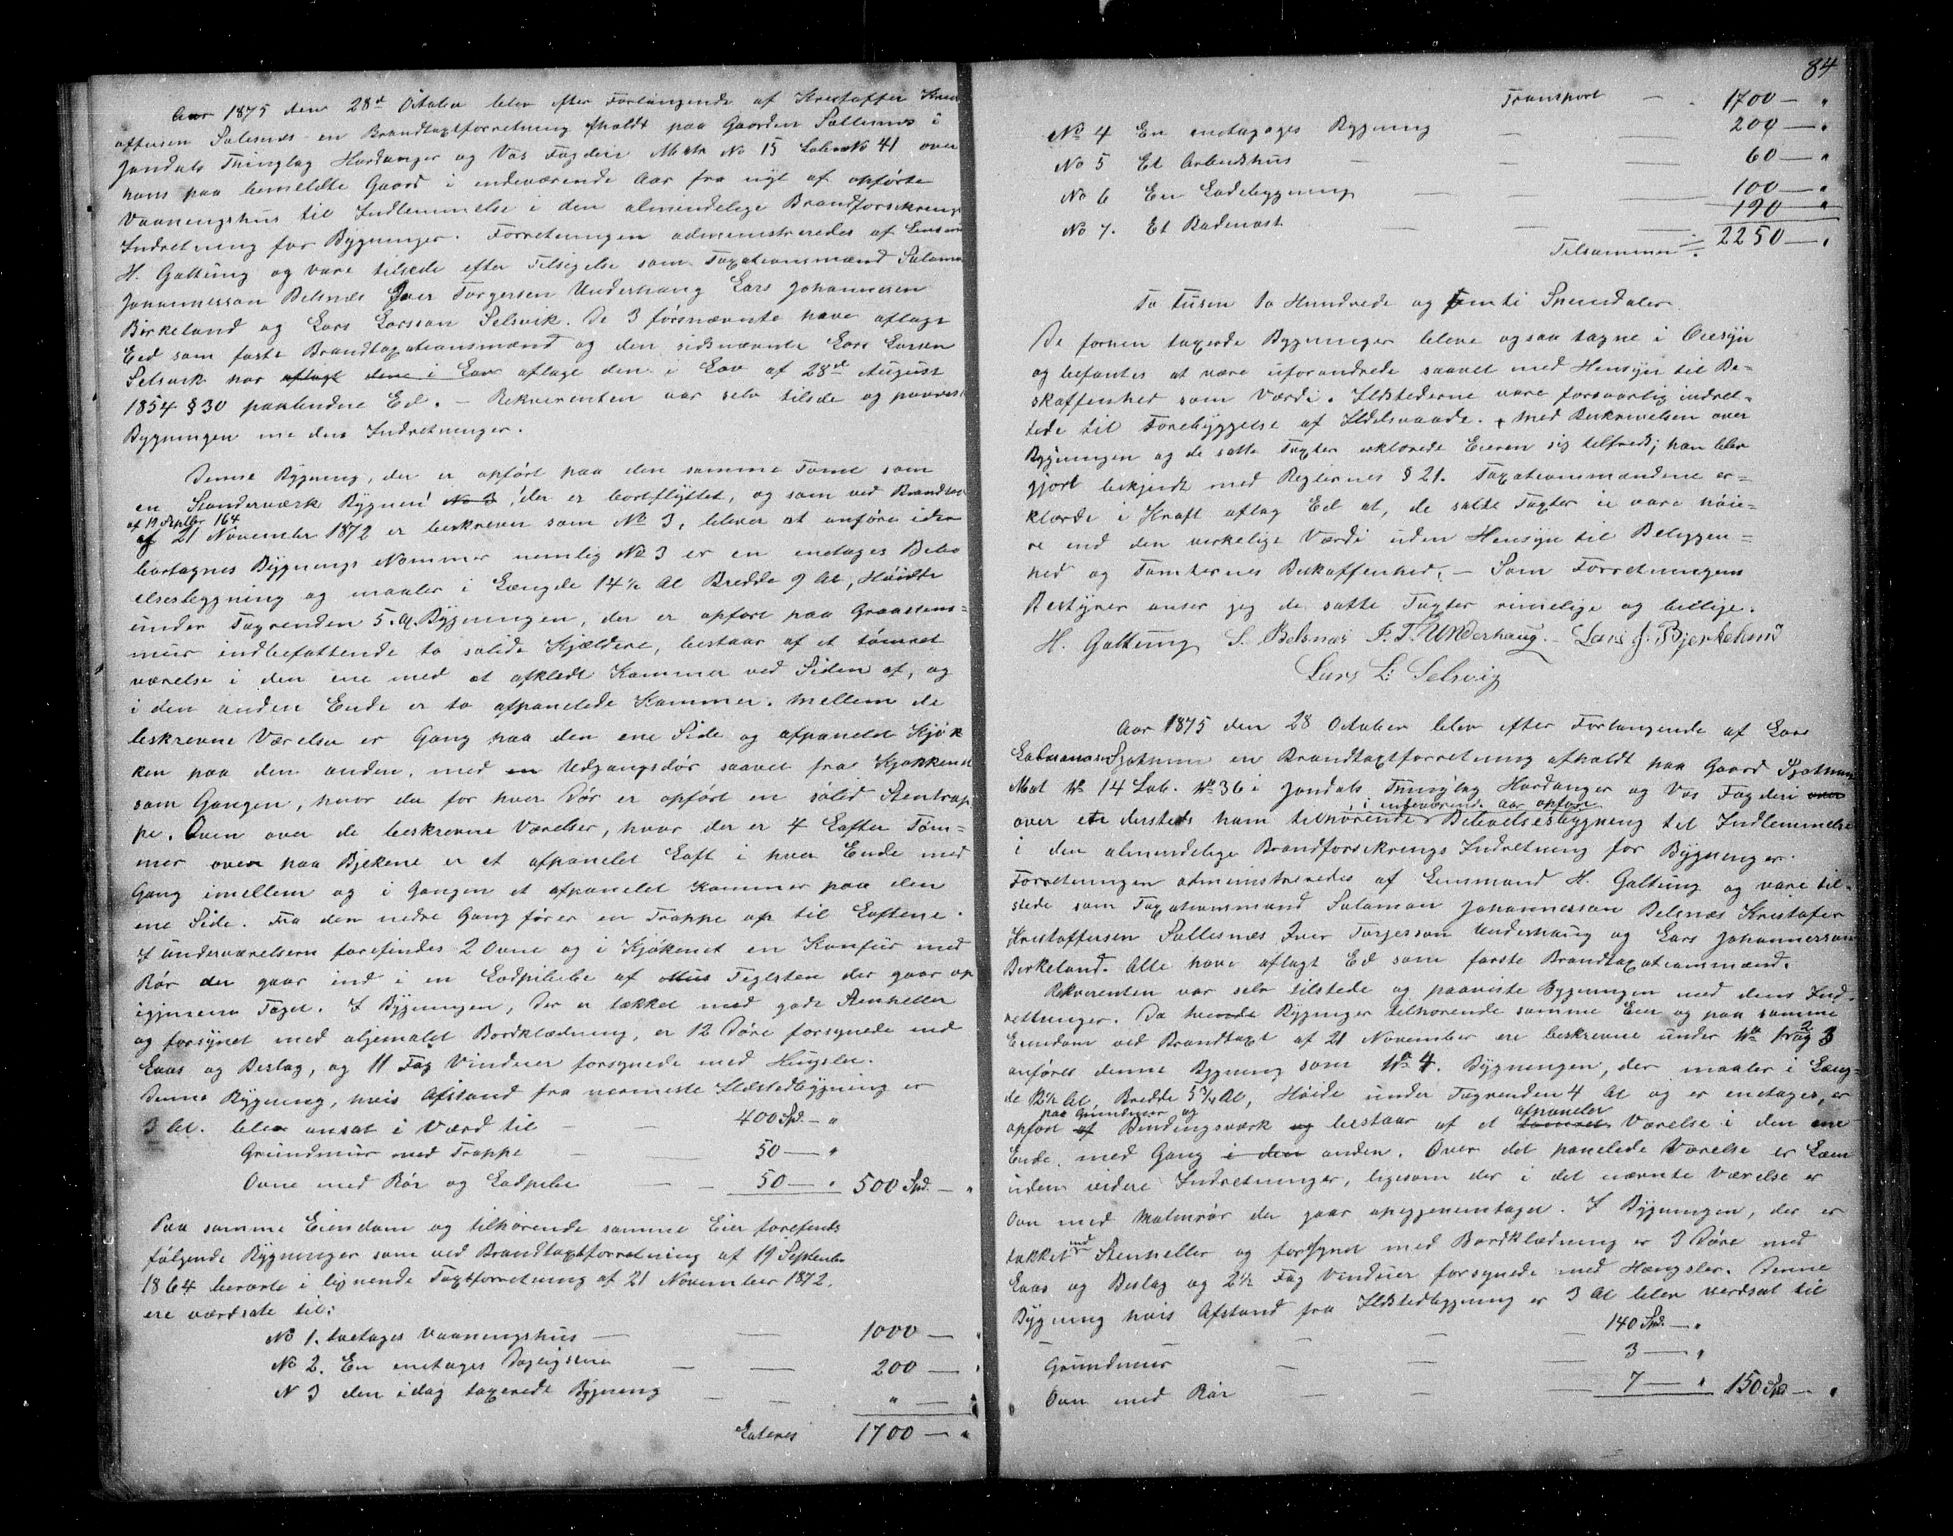 Aar 1875 den 28de Octobr blev efter Forlangende af Kristoffer Krist
offersen Salesnæs en Brandtaxtforretning afholdt paa Gaarden Sallesnæs i
Jondals Thinglag Hardanger og Vos Fogderi Matr No 15 Lobe No 41 over
hans paa bemeldte Gaard i indeværende Aar fra nyt af opførte
Vaaningshus til Indlemmelse i den almindelige Brandforsikrings
Indretning for Bygninger. Forretningen administreredes af Lensm
H. Galtung og vare tilstede efter Tilsigelse som Taxationsmænd Salamon
Johannesson Belsnæs Iver Torgersen Underhaug Lars Johannesen
Birkeland og Lars Larsson Selsvik. De 3 førsnævnte have aflagt
Eed som faste Brandtaxationsmænd og den sidsnævnte Lars Larsen
Selsvik har aflagt dene i Lov aflagt den i Lov af 28de August
1854 § 30 paabudne Ed. – Rekvirenten var selv tilstede og paaviste
Bygningen me dens Indretninger.
Denne Bygning, der er opført paa den samme Tomt som
en Standerværk Bygnin No 3, der er bortflyttet, og som ved Brandtax
af 19 Septbr 164
af 21 November 1872 er beskreven som No 3, bliver at anføre iden
bortagnes Bygnings Nommer nemlig No 3 er en enetages Bebo
elsesbygning og maaler i Længde 14½ Al Bredde 9 Al, Høidte
under Tagrenden 5 Al. Bygningen, der er opført paa Graastens-
mur indbefattende to solide Kjældere, bestaar af et tømret
værelse i den ene med et afkledt Kammer ved Siden af, og
i den anden Ende er to afpanelede Kammer. Mellem de
beskrevne Værelser er Gang paa den ene Side og afpanelet Kjøk
ken paa den anden, med en Udgangsdør saavel fra Kjøkkenet
som Gangen, hvor du for hver Dør er opført en solid Stentrap
pe. Oven over de beskrevne Værelser, hvor der er 4 Lafter Tøm-
mer oven paa Bjekene er et afpanelet Loft i hver Ende med
Gang imellem og i Gangen et afpanelet Kammer paa den
ene Side. Fra den nedre Gang fører en Trappe op til Loftene.
I underværelsern forefindes 2 Ovne og i Kjøkenet en Komfur med
Rør der gaar ind i en Lodpibe af Mus Teglsten der gaar op
igjenem Taget. I Bygningen, der er tækket med gode Stenheller
og forsynet med oljemalet Bordklædning, er 12 Døre forsynede med
Laas og Beslag, og 11 Fag Vinduer forsynede med Hengsler.
Denne Bygning, hvis Afstand fra nærmeste Ildstedbygning er
3 Al. blev ansat i Værd til — — 400 Spd. – „
Grundmur med Trappe — — 50 — „
Ovne med Rør og Lodpibe — — 50 — „ 500 Spd. — „
Paa samme Eiendom og tilhørende samme Eier forefinds
følgende Bygninger som ved Brandtaxtforretning af 19 September
1864 henvørte i lignende Taxtforretning af 21 November 1872.
ere værdsate til:
No 1. toetages Vaaningshus — — 1000 — „
No 2. En enetages Dagligstue — — 200 — „
N 3 den idag taxerede Bygning — — „ —
Lateris 1700 — „
84
Transport — . 1700 — „
No 4 En enetages Bygning — — 200 — „
No 5 Et Arbeidshus — — 60 — „
No 6 En Ladebygning — — 100 — „
No 7. Et Badenøst — — 190 — „
Tilsammen 2250 — „
To Tusen to Hundrede og femti Speciedaler
De forhen taxerede Bygninger bleve ogsaa tagne i Øiesyn
og befantes at være uforandrede saavel med Hensyn til Be-
skaffenhed som Værdi. Ildstederne vare forsvarlig indret-
tede til Forebyggelse af Ildsvaade. + Med Beskrivelsen over
Bygningen og de satte Taxter erklærede Eieren sig tilfreds; han blev
gjort bekjendt med Reglernes § 21. Taxationsmændene er-
klærde i Kraft aflag Ed at, de satte Taxter ei vare høie-
re end den virkelige Værdi uden Hensyn til Beliggen-
hed og Tomternes Beskaffenhed. – Som Forretningens
Bestyrer anser jeg de satte Taxter rimelige og billige.
H. Galtung S. Belsnæs I. T. Underhaug. – Lars J. Bjerkelund
Lars L: Selsvig
Aar 1875 den 28 October blev efter Forlangende af Lars
Salomonsen Sjøthun en Brandtaxtforretning afholdt paa Gaard Sjøthun
Mat No 14 Lob. No 36 i Jondals Thinglag Hardanger og Vos Fogderi over
i indeværende Aar opført
over ete dersteds ham tilhørende Beboelsesbygning til Indlemmelse
i den almindelige Brandforsikrings Indretning for Bygninger.
Forretningen administreredes af Lensmand H. Galtung og vare til-
stede som Taxationsmænd Salamon Johannesson Belsnæs Kristofer
Kristoffersen Sallesnæs Iver Torjerson Underhaug og Lars Johannesson
Birkeland. Alle have aflagt Ed som faste Brandtaxationsmænd.
Rekvirenten var selv tilstede og paaviste Bygningen med dens Ind-
rettninger. Da hvorde Bygninger tilhørende samme Eier og paa samme
Eiendom ved Brandtaxt af 21 November ere beskrevne under No 1 2 og 3
anføres denne Bygning som No 4. Bygningen, der maaler i Læng-
de 12½ Al, Bredde 5¾ Al, Høide under Tagrenden 4 Al og er enetages, er
paa Grundmur og afpanelet
opført af Bindingsværk og bestaar af et tømret Værelse i den ene
Ende med Gang i den anden. Over det panelede Værelse er Læm
uden videre Indretninger, ligesom der i det nævnte Værelse er
Ovn med Malmrør der gaar opigjenemtaget. I Bygningen, der er
tækket med Stenheller og forsynet med Bordklædning er 3 Døre med
Laas og Beslag og 2½ Fag Vinduer forsynede med Hængsler. Denne
Bygning hvis Afstand fra Ildstedbygning er 3 Al blev verdsat til
140 Spd. — „
Grundmur — — 3 — „
Ovn med Rør — — 7 — „ 150 Spd — „